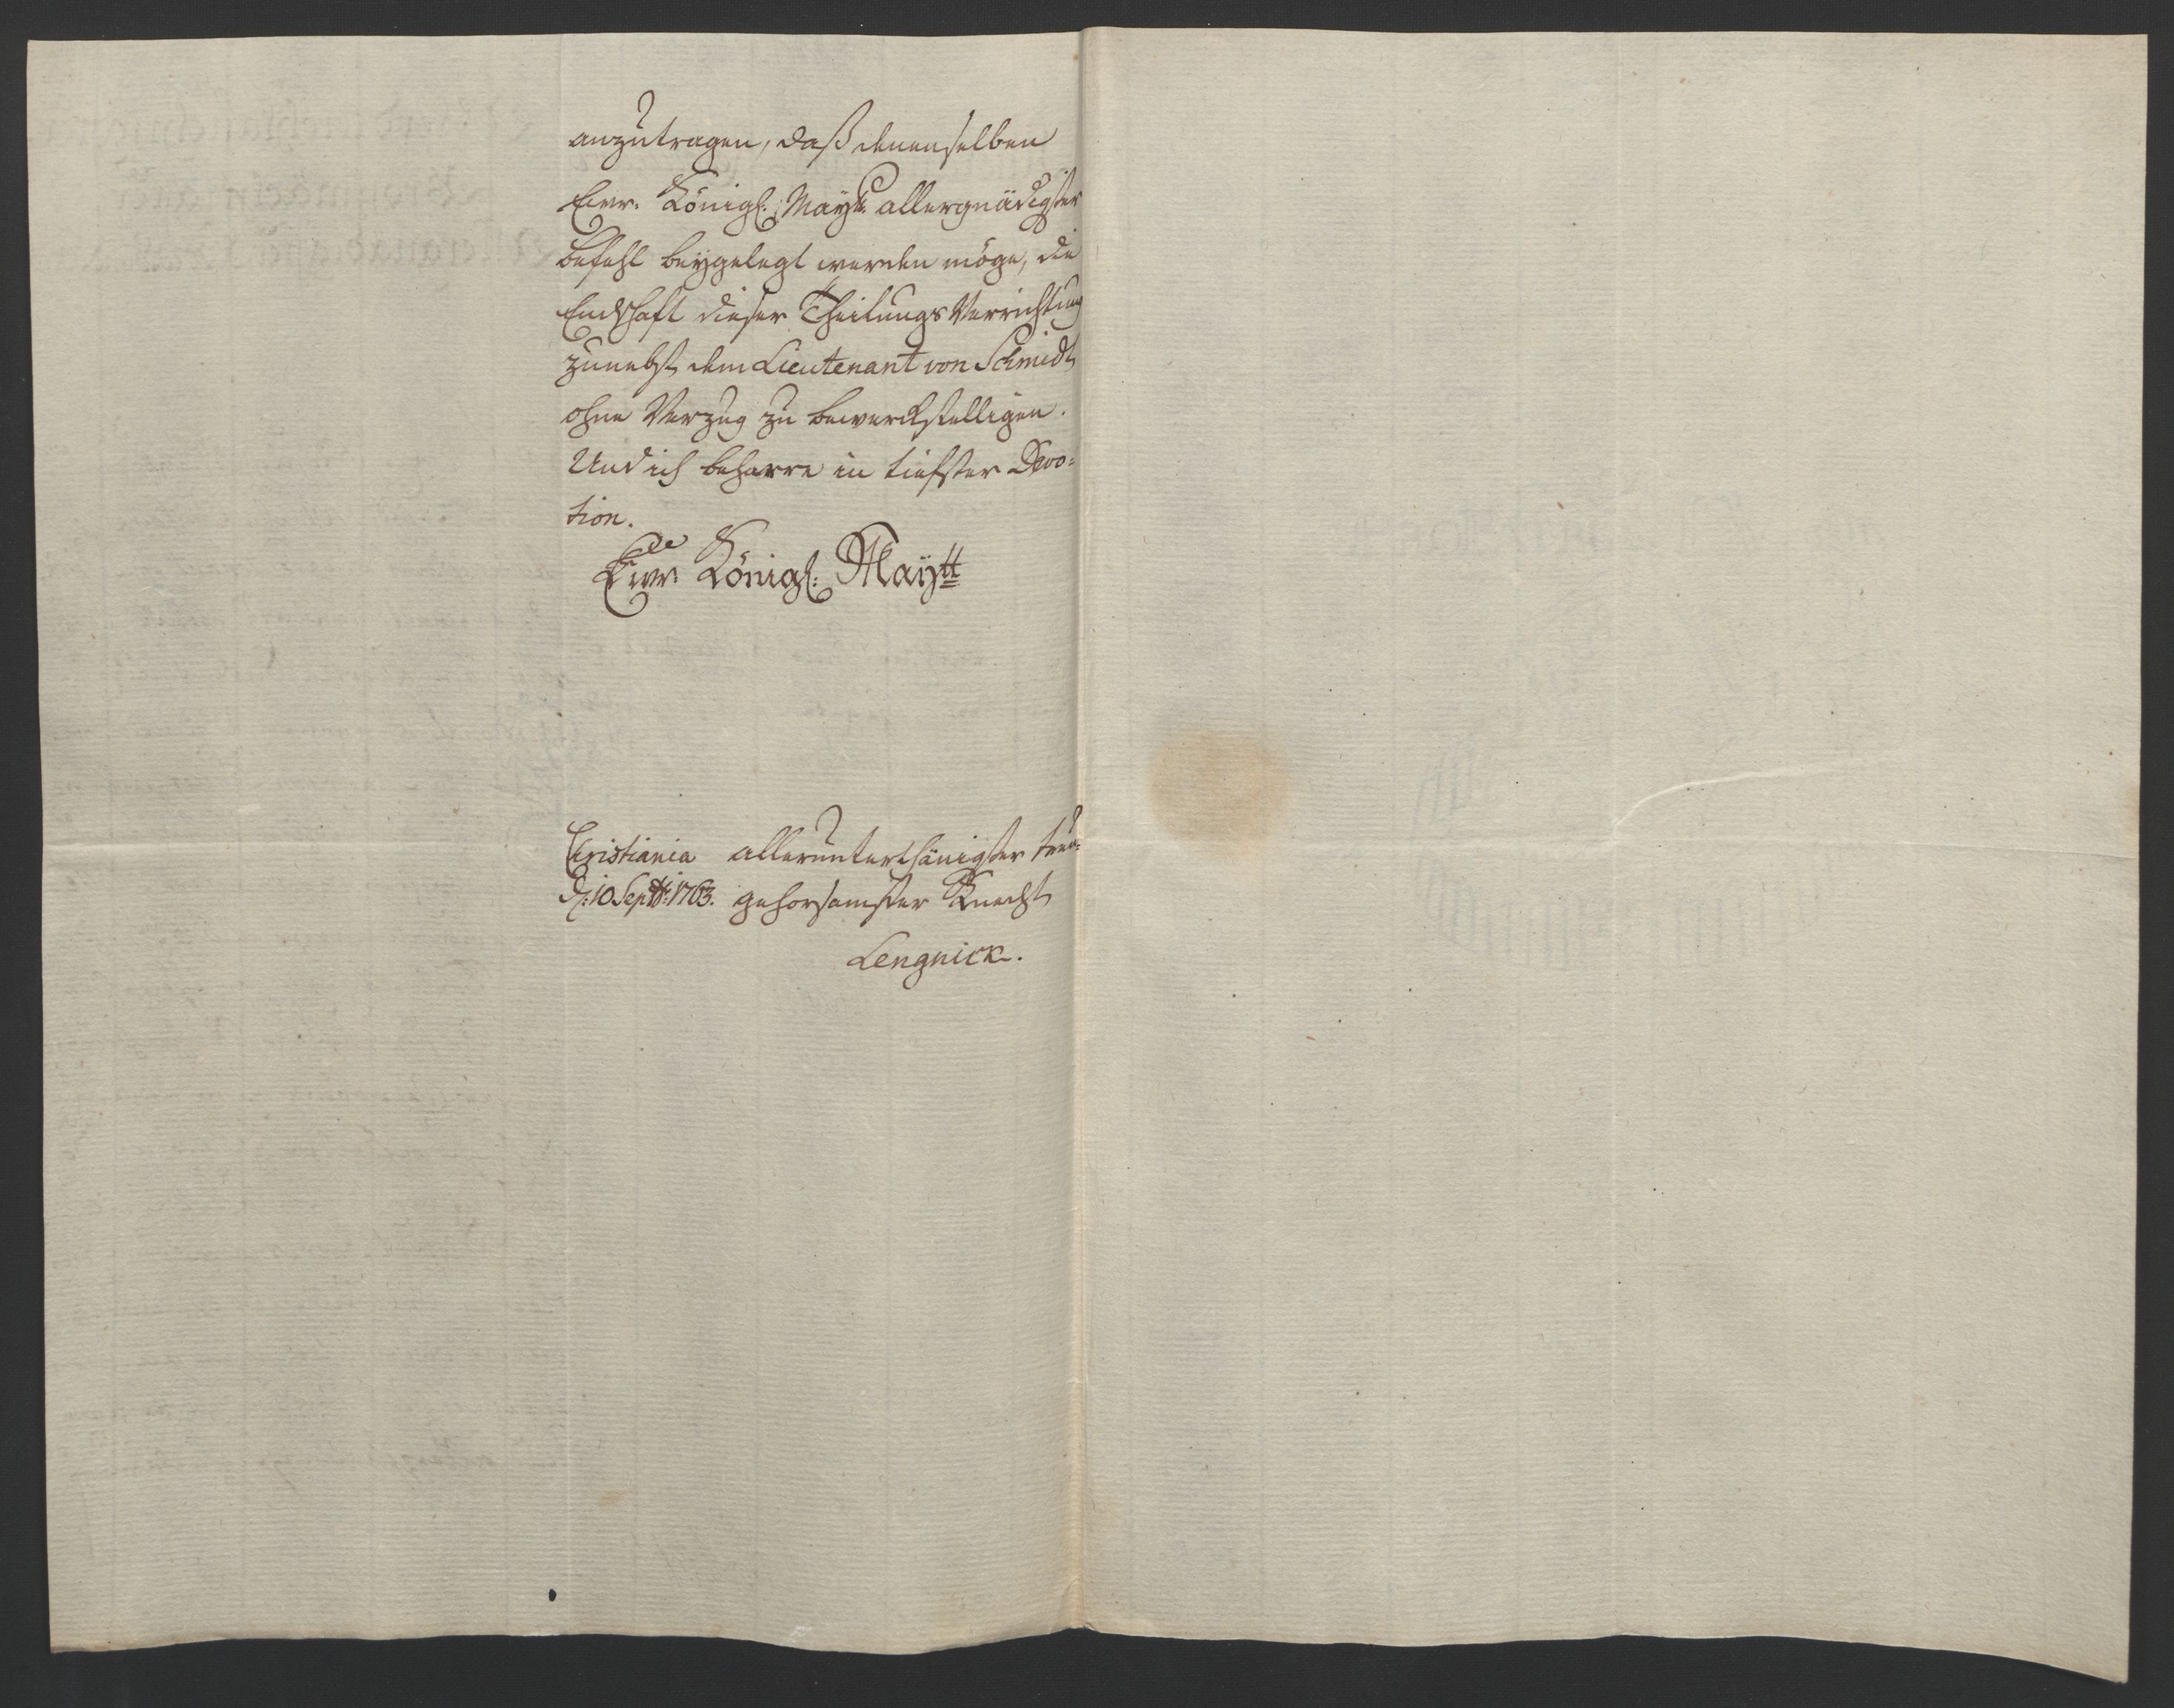 anzutragen, daß denenselben
Ewr. Königl. Maytt allergnädigster
Befehl beygelegt werden möge, die
Endschaft dieser Theilungs Verrichtung
zunebst dem Lieutenant von Schmidt
ohne Verzug zu bewerckstelligen.
Und ich beharre in tiefster Devo=
tion.
Ewr. Königl. Maytt
Christiania allerunterthänigster treu=
d: 10 Septbr: 1763. gehorsamster Knecht
Lengnick.